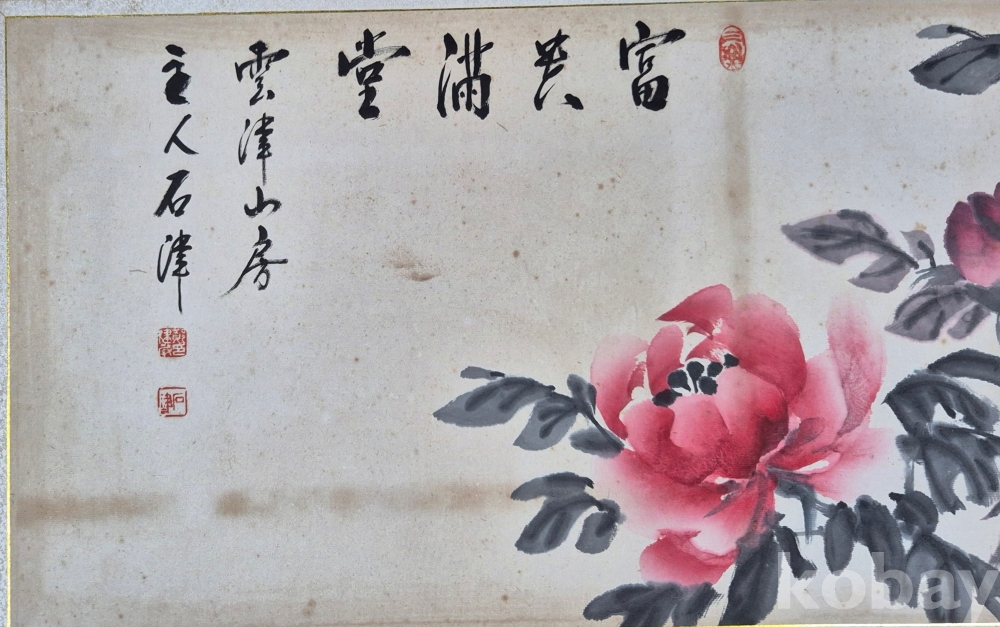 富貴滿堂
雲津山房
主人石津
石津
kobay